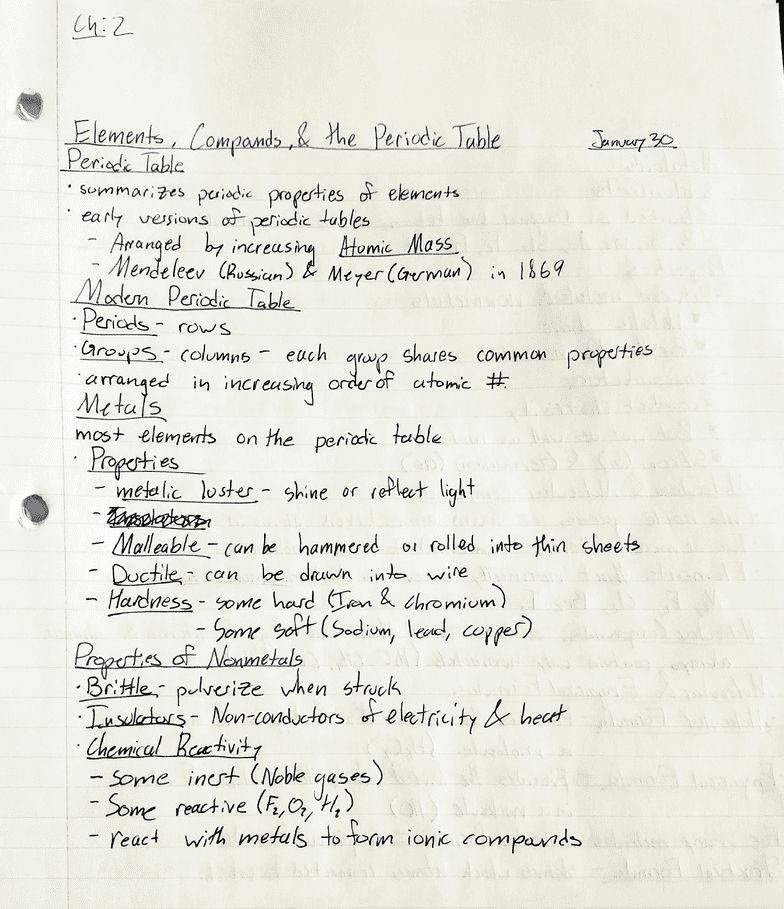 Ch: 2
Elements, Compands, & the Periodic Table January 30
Periodic Table
· summarizes periodic properties of elements
· early versions of periodic tables
- Arranged by increasing Atomic Mass
- Mendeleev (Russian) & Meyer (German) in 1869
Modern Periodic Table
· Periods - rows
· Groups - columns - each group shares common properties
· arranged in increasing order of atomic #.
Metals
most elements on the periodic table
· Properties
- metalic luster - shine or reflect light
-
- Malleable - can be hammered or rolled into thin sheets
- Ductile - can be drawn into wire
- Hardness - some hard (Iron & chromium)
- Some soft (Sodium, lead, copper)
Properties of Nonmetals
· Brittle - pulverize when struck
· Insulators - Non-conductors of electricity & heat
· Chemical Reactivity
- some inert (Noble gases)
- Some reactive (F₂, O₂, H₂)
- react with metals to form ionic compands